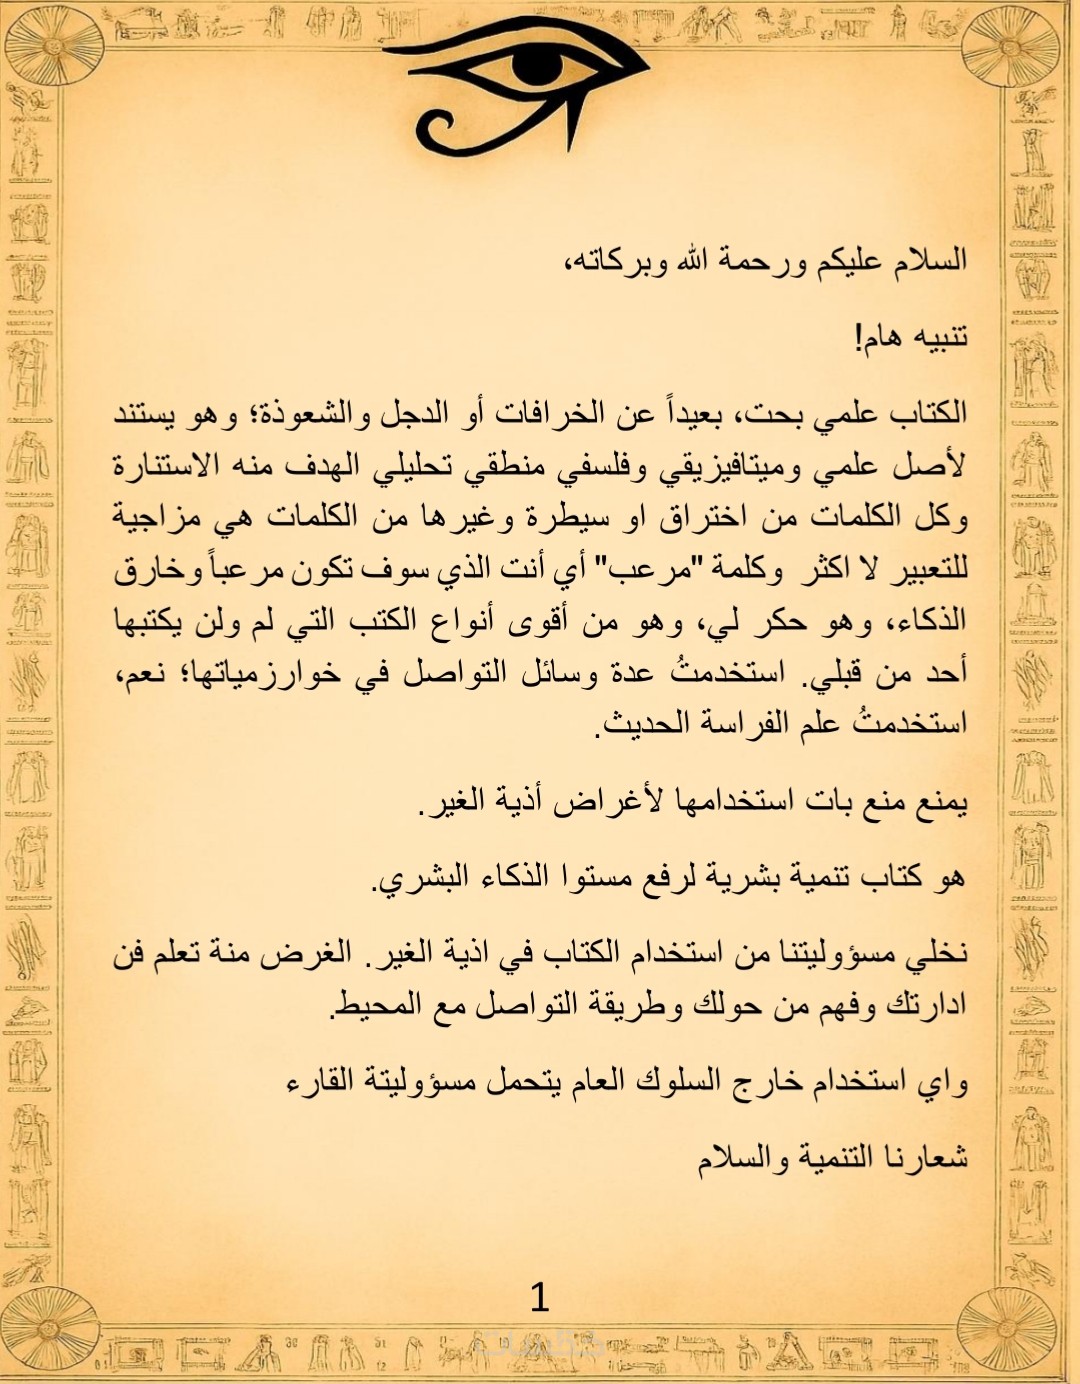 السلام عليكم ورحمة الله وبركاته،
تنبيه هام!
الكتاب علمي بحت، بعيداً عن الخرافات أو الدجل والشعوذة؛ وهو يستند
لأصل علمي وميتافيزيقي وفلسفي منطقي تحليلي الهدف منه الاستنارة
وكل الكلمات من اختراق او سيطرة وغيرها من الكلمات هي مزاجية
للتعبير لا اكثر وكلمة "مرعب" أي أنت الذي سوف تكون مرعباً وخارق
الذكاء، وهو حكر لي، وهو من أقوى أنواع الكتب التي لم ولن يكتبها
أحد من قبلي. استخدمتُ عدة وسائل التواصل في خوارزمياتها؛ نعم،
استخدمتُ علم الفراسة الحديث.
يمنع منع بات استخدامها لأغراض أذية الغير.
هو كتاب تنمية بشرية لرفع مستوا الذكاء البشري.
نخلي مسؤوليتنا من استخدام الكتاب في اذية الغير. الغرض منة تعلم فن
ادارتك وفهم من حولك وطريقة التواصل مع المحيط.
واي استخدام خارج السلوك العام يتحمل مسؤوليتة القارء
شعارنا التنمية والسلام
1